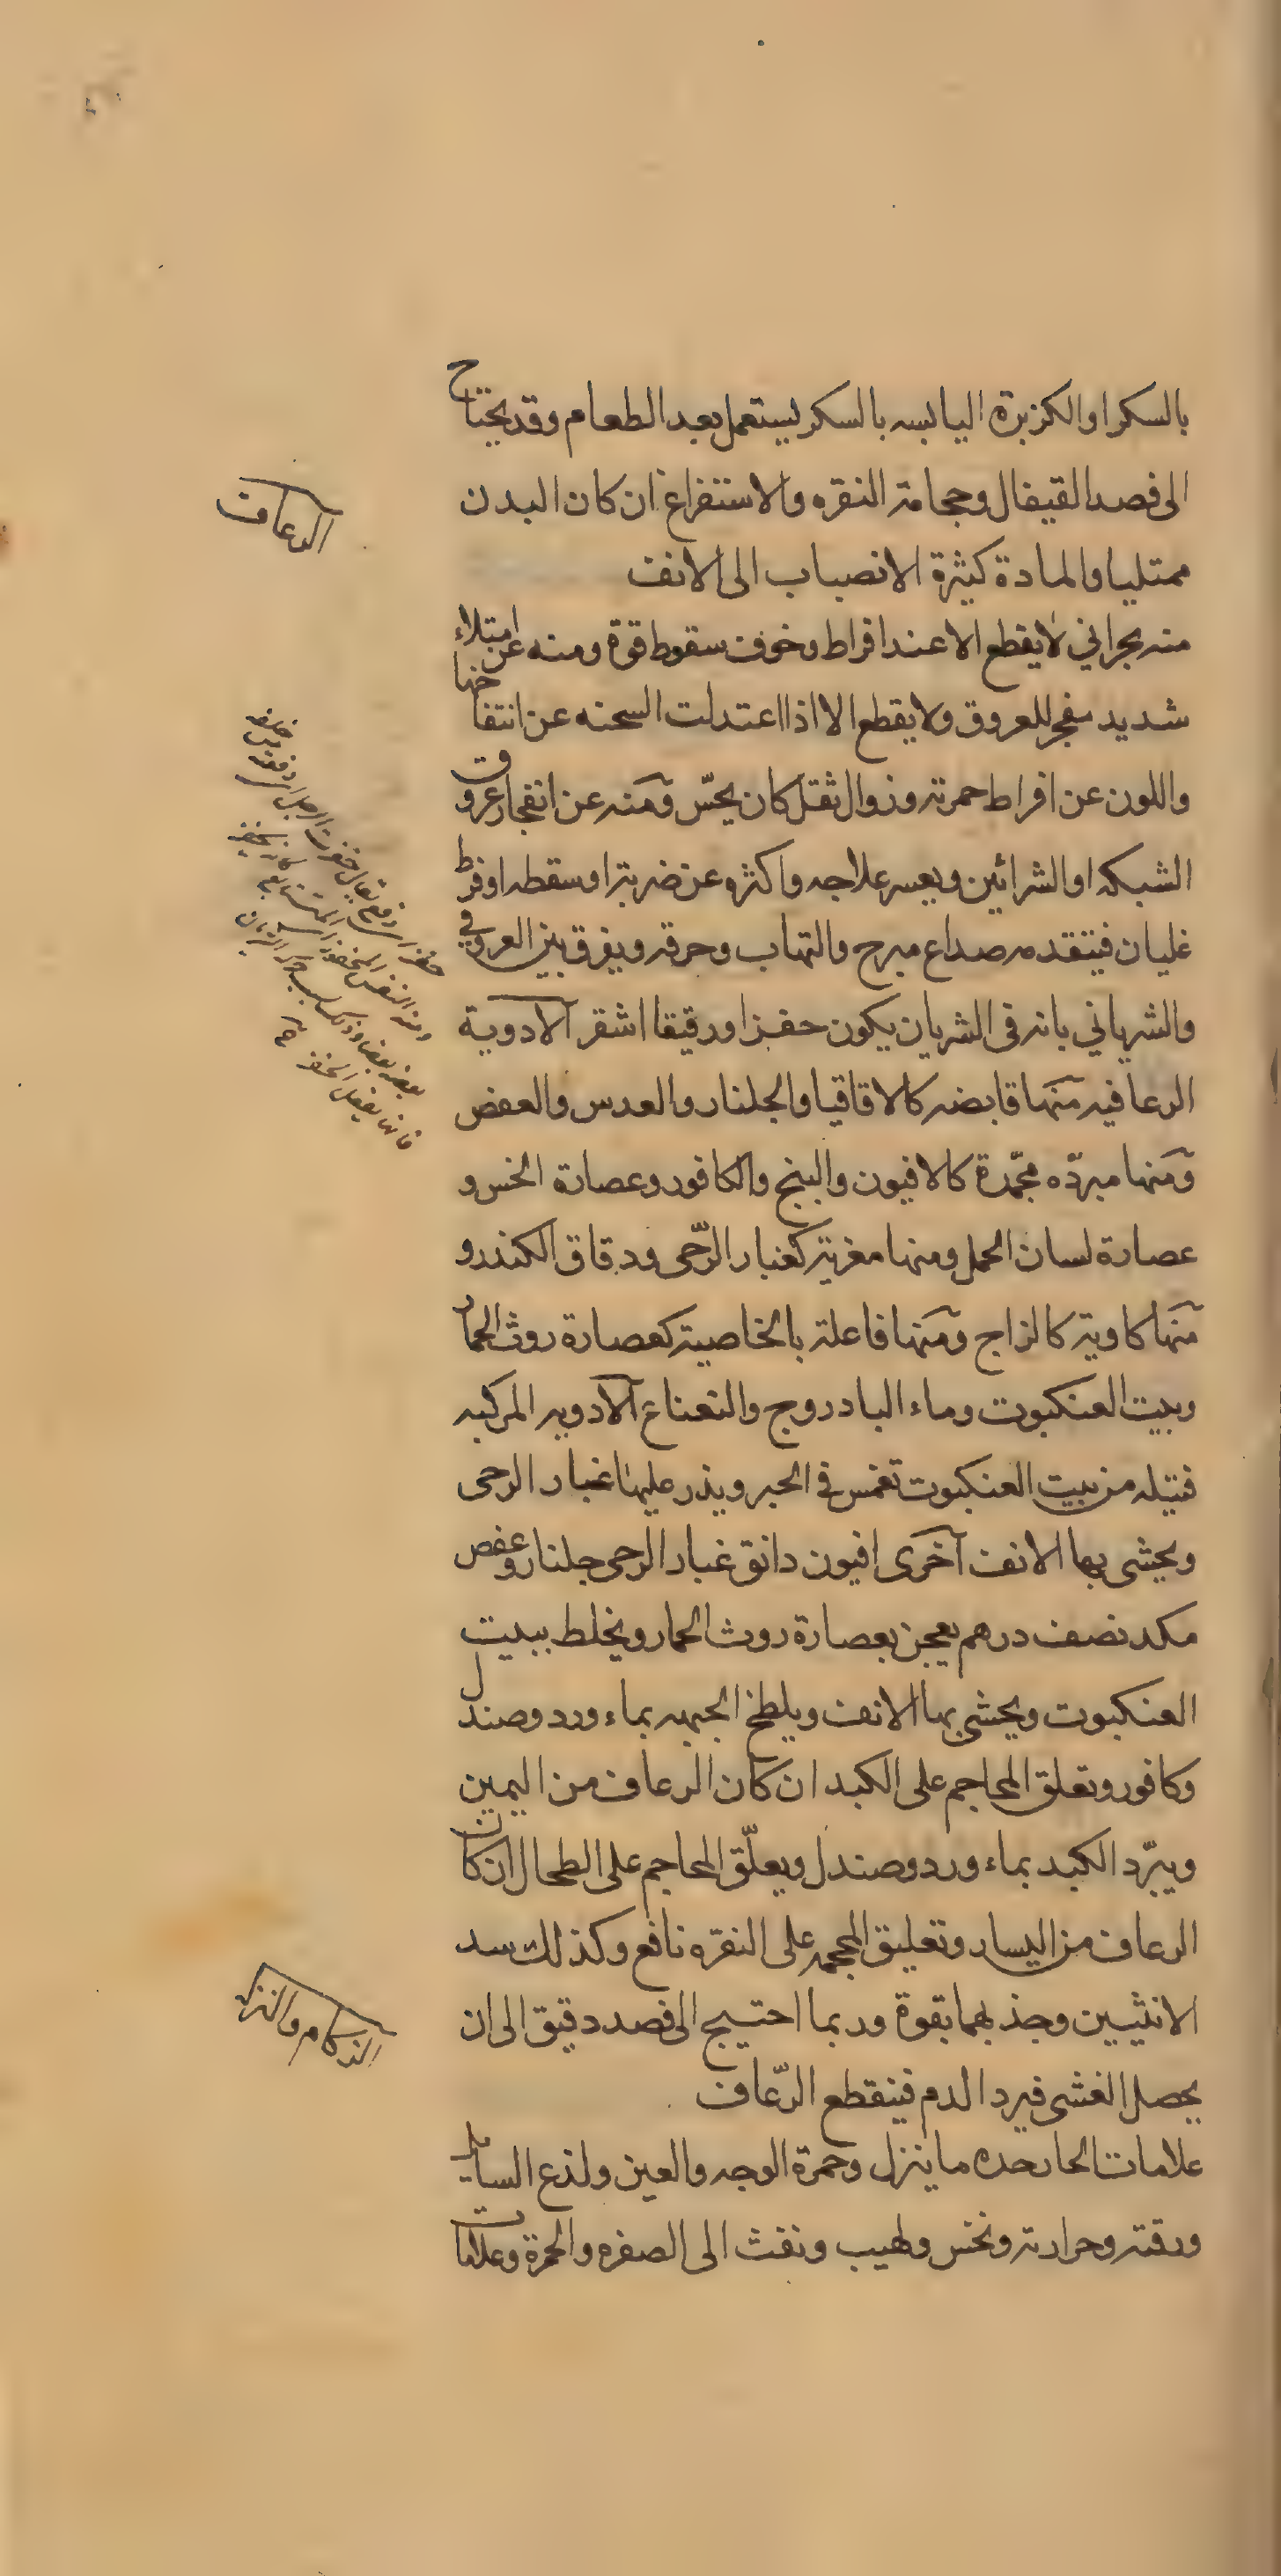 بالسكر او الكزبرة اليابسه بالسكر يستعمل بعد الطعام وقد يحتاج
الى فصد القيفال وحجامة النقره والاستفراغ ان كان البدن
ممتليا والمادة كثيرة الانصباب الى الانف
الرعاف
منه بحراني لا يقطع الا عند افراط وخوف سقوط قوة ومنه عن امتلاء
شديد مفجر للعروق ولا يقطع الا اذا اعتدلت السحنه عن انتفاخها
واللون عن افراط حمرته وزوال ثقل كان يحسّ ومنه عن انفجار عروق
الشبكه او الشرائين ويعسر علاجه واكثره عن ضربة او سقطه او فرط
غليان فيتقدمه صداع مبرح والتهاب وحرقه ويفرق بين العروقي
والشرياني بانه في الشريان يكون حفزا ورقيقا اشقر الادوية
الرعافيه منها قابضه كالاقاقيا والجلنار والعدس والعفص
ومنها مبردّه مجمّدة كالافيون والبنج والكافور وعصارة الخس و
عصارة لسان الحمل ومنها مغرية كغبار الرّحى ودقاق الكندر و
منها كاوية كالزاج ومنها فاعلة بالخاصية كعصارة روث الحمار
وبيت العنكبوت وماء البادروج والنعناع الادويه المركبه
فتيله من بيت العنكبوت تغمس في الحبر ويذر عليها غبار الرحى
ويحشى بها الانف اخرى افيون دانق غبار الرحى جلنار وعفص
مكد نصف درهم يعجن بعصارة روث الحمار ويخلط ببيت
العنكبوت ويحشى بها الانف ويلطخ الجبهه بماء ورد وصندل
وكافور وتعلق المحاجم على الكبد ان كان الرعاف من اليمين
ويبرّد الكبد بماء ورد وصندل ويعلّق المحاجم على الطحال ان كان
الرعاف من اليسار وتعليق المحجمه على النقره نافع وكذلك سد
الانثيين وجذبهما بقوة وربما احتيج الى فصد دقيق الى ان
يحصل الغشى فيرد الدم فينقطع الرّعاف
الزكام والنزله
علامات الحار حده ما ينزل وحمرة الوجه والعين ولذع السايل
ورقته وحرارته ونخس ولهيب ونفث الى الصفره والحمرة وعلامات